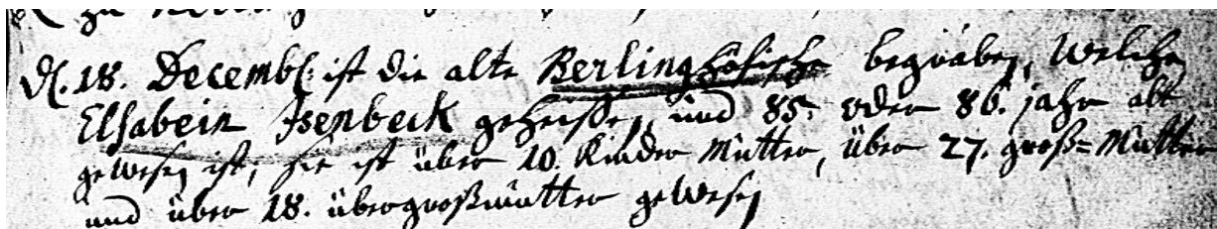 d. 18. Decembr: ist die alte Berlinghöfische begraben, welche
Elsabein Isenbeck geheissen, und 85. oder 86. jahr alt
gewesen ist, sie ist über 10. Kinder Mutter, über 27. groß=Mutter
und über 18. übergroßmutter gewesen